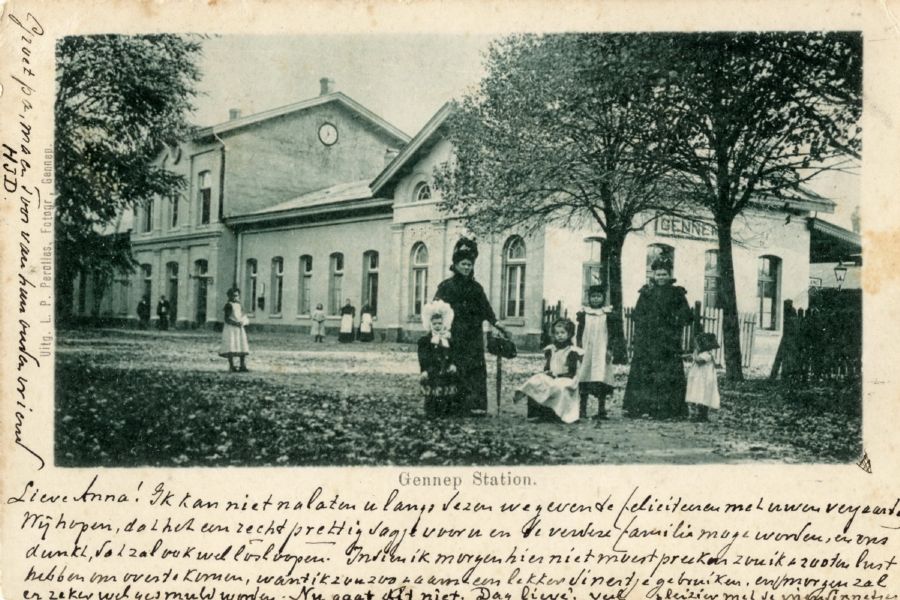 Groet pa, ma en        van hun ouden vriend
HJD.
Uitg. L. P. Perdijs. Fotogr. Gennep.
GENNEP
Gennep Station.
Lieve Anna! Ik kan niet nalaten u langs dezen weg even te feliciteeren met uwen verjaard
Wij hopen, dat het een recht prettig dagje voor u en de verdere familie moge worden, en ons
dunkt, dat zal ook wel loslopen. Indien ik morgen hier niet moest preeken zou ik zoo ten lust
hebben om over te komen, want ik zou zoo gaarn een lekker dinertje gebruiken, en morgen zal
er zeker wel gesmuld worden. Nu gaat dit niet. Dag lieve! veel plezier met de